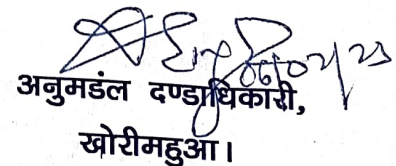 06/02/23
अनुमडंल दण्डाधिकारी,
खोरीमहुआ।